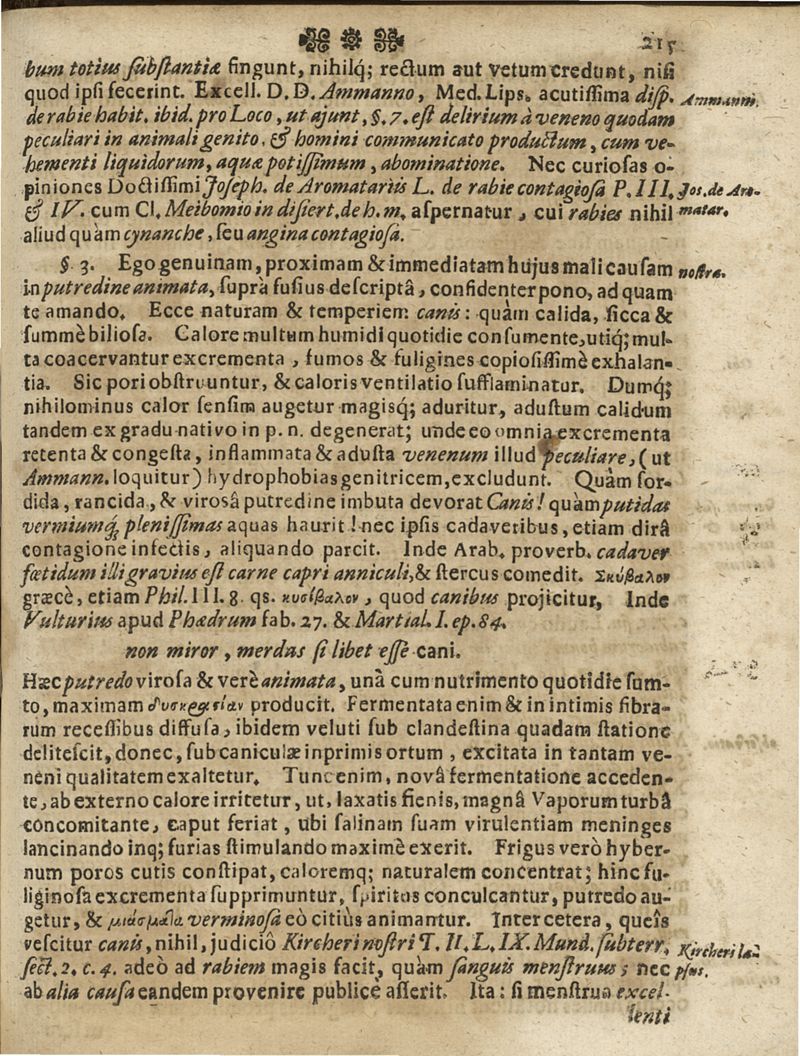 215
bum totius ſubſtantiæ fingunt, nihilq; rectum aut vetum credunt, niſi
quod ipſi fecerint. Excell. D. D. Ammanno, Med. Lipſ. acutiſſima diſp. Ammanni.
de rabie habit. ibid. pro Loco, ut ajunt, §. 7. eſt delirium à veneno quodam
peculiari in animali genito, & homini communicato productum, cum ve-
hementi liquidorum, aquæ potiſſimum, abominatione. Nec curioſas o-
piniones Doctiſſimi Joſeph. de Aromatariis L. de rabie contagioſâ P. III. Joſ. de Aro-
& IV. cum Cl. Meibomio in diſſert. de h. m. aſpernatur, cui rabies nihil matar.
aliud quàm cynanche, ſeu angina contagioſa.
§. 3. Ego genuinam, proximam & immediatam hujus mali cauſam noſtra.
in putredine animata, ſuprà fuſius deſcriptâ, confidenter pono, ad quam
te amando. Ecce naturam & temperiem canis: quàm calida, ſicca &
ſummè bilioſa. Calore multum humidi quotidie conſumente, utiq; mul-
ta coacervantur excrementa, fumos & fuligines copioſiſſimè exhalan-
tia. Sic pori obſtruuntur, & caloris ventilatio ſufflaminatur. Dumq;
nihilominus calor ſenſim augetur magisq; aduritur, aduſtum calidum
tandem ex gradu nativo in p. n. degenerat; unde eo omnia excrementa
retenta & congeſta, inflammata & aduſta venenum illud peculiare, (ut
Ammann. loquitur) hydrophobias genitricem, excludunt. Quàm ſor-
dida, rancida, & viroſâ putredine imbuta devorat Canis! quàm putidas
vermiumq; pleniſſimas aquas haurit! nec ipſis cadaveribus, etiam dirâ
contagione infectis, aliquando parcit. Inde Arab. proverb. cadaver
fœtidum illi gravius eſt carne capri anniculi, & ſtercus comedit. Σκύβαλον
græcè, etiam Phil. III. 8. qs. κυσίβαλον, quod canibus projicitur, Inde
Vulturius apud Phædrum fab. 27. & Martial. I. ep. 84.
non miror, merdas ſi libet eſſe cani.
Hæc putredo viroſa & verè animata, unà cum nutrimento quotidie ſum-
to, maximam δυσκρασίαν producit. Fermentata enim & in intimis fibra-
rum receſſibus diffuſa, ibidem veluti ſub clandeſtina quadam ſtatione
deliteſcit, donec, ſub caniculæ inprimis ortum, excitata in tantam ve-
neni qualitatem exaltetur. Tunc enim, novâ fermentatione acceden-
te, ab externo calore irritetur, ut, laxatis fienis, magnâ Vaporum turbâ
concomitante, caput feriat, ubi ſalinam ſuam virulentiam meninges
lancinando inq; furias ſtimulando maximè exerit. Frigus verò hyber-
num poros cutis conſtipat, caloremq; naturalem concentrat; hinc fu-
liginoſa excrementa ſupprimuntur, ſpiritus conculcantur, putredo au-
getur, & μιάσματα verminoſa eò citiùs animantur. Inter cetera, queîs
veſcitur canis, nihil, judiciô Kircheri noſtri T. II. L. IX. Mund. ſubterr. Kircheri la-
ſect. 2. c. 4. adeò ad rabiem magis facit, quàm ſanguis menſtruus; nec pſus.
ab alia cauſa eandem provenire publicè aſſerit. Ita: ſi menſtrua excel-
lenti